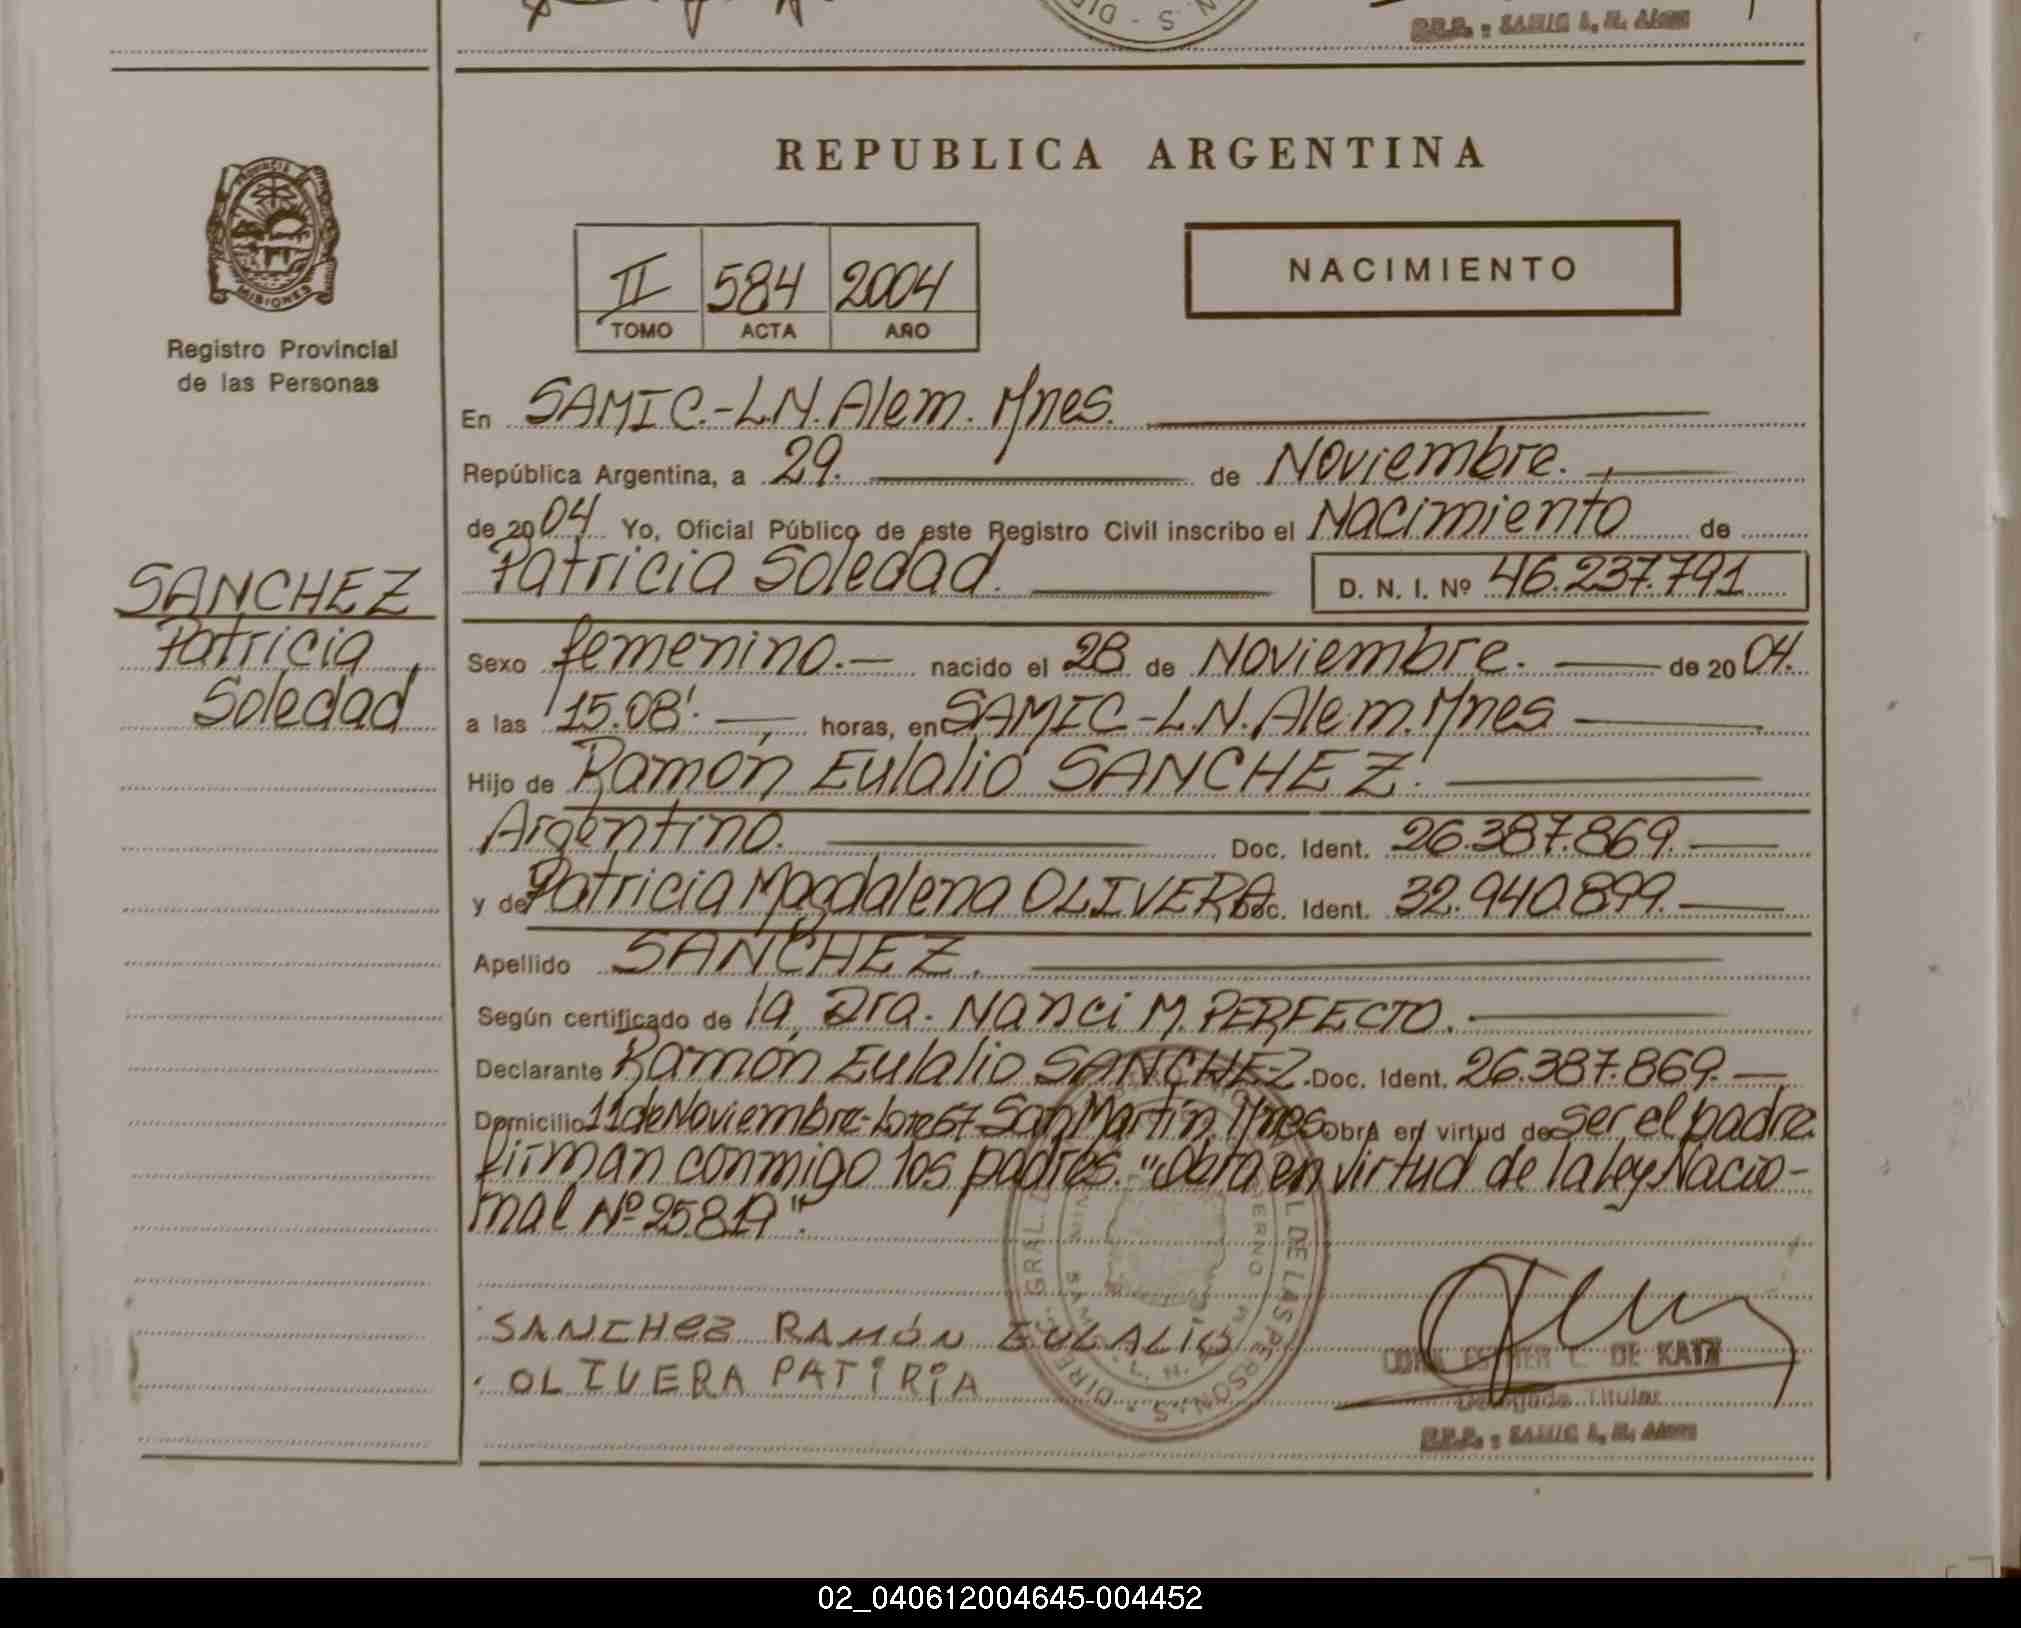 REPUBLICA ARGENTINA
PROVINCIA
MISIONES
Registro Provincial
de las Personas
II 584 2004
TOMO ACTA AÑO
NACIMIENTO
En SAMIC.-L.N. Alem. Mnes.
República Argentina, a 29. de Noviembre.
de 2004 Yo, Oficial Público de este Registro Civil inscribo el Nacimiento de
Patricia Soledad. D. N. I. Nº 46.237.791
SANCHEZ
Patricia
Soledad
Sexo femenino.- nacido el 28 de Noviembre. de 2004.
a las 15.08'. horas, en SAMIC-L.N. Alem. Mnes
Hijo de Ramón Eulalio SANCHEZ.
Argentino. Doc. Ident. 26.387.869.
y de Patricia Magdalena OLIVERA Doc. Ident. 32.940.899.
Apellido SANCHEZ.
Según certificado de la Dra. Nanci M. PERFECTO.
Declarante Ramón Eulalio SANCHEZ. Doc. Ident. 26.387.869.
Domicilio 11 de Noviembre-Lote 67 San Martín, Mnes Obra en virtud de ser el padre
firman conmigo los padres. "Obra en virtud de la ley Nacio-
nal Nº 25819".
SANCHEZ RAMÓN EULALIO
OLIVERA PATIRIA
DE KATZ
Delegada Titular
R.P.P. - SAMIC L. N. Alem
02_040612004645-004452